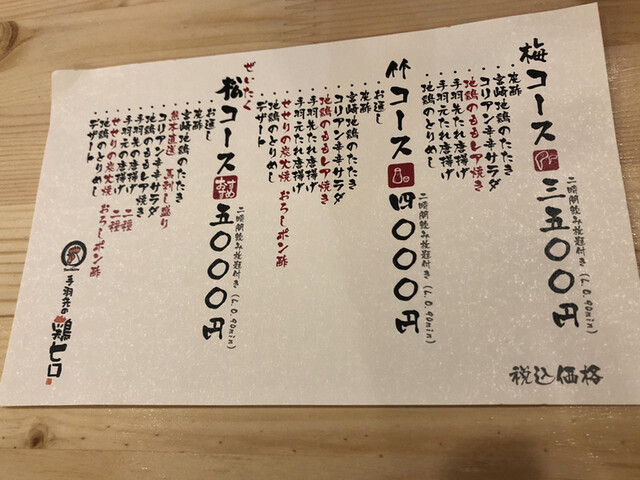 梅コース 三五〇〇円
二時間飲み放題付き(L.O.90min)
・炭酢
・宮崎地鶏のたたき
・コリアン辛辛サラダ
・地鶏のももレア焼き
・手羽先たれ唐揚げ
・手羽元たれ唐揚げ
・地鶏のとりめし
竹コース 四〇〇〇円
二時間飲み放題付き(L.O.90min)
・お通し
・炭酢
・宮崎地鶏のたたき
・コリアン辛辛サラダ
・地鶏のももレア焼き
・手羽先たれ唐揚げ
・手羽元たれ唐揚げ
・せせりの炭火焼 おろしポン酢
・地鶏のとりめし
・デザート
ぜいたく
松コース おすすめ 五〇〇〇円
二時間飲み放題付き(L.O.90min)
・お通し
・炭酢
・宮崎地鶏のたたき
・コリアン辛辛サラダ
・熊本直送 馬刺し盛り
・地鶏のももレア焼き
・手羽先の唐揚げ 二種
・手羽元の唐揚げ 二種
・せせりの炭火焼 おろしポン酢
・地鶏のとりめし
・デザート
手羽先の鶏ヒロ
税込価格